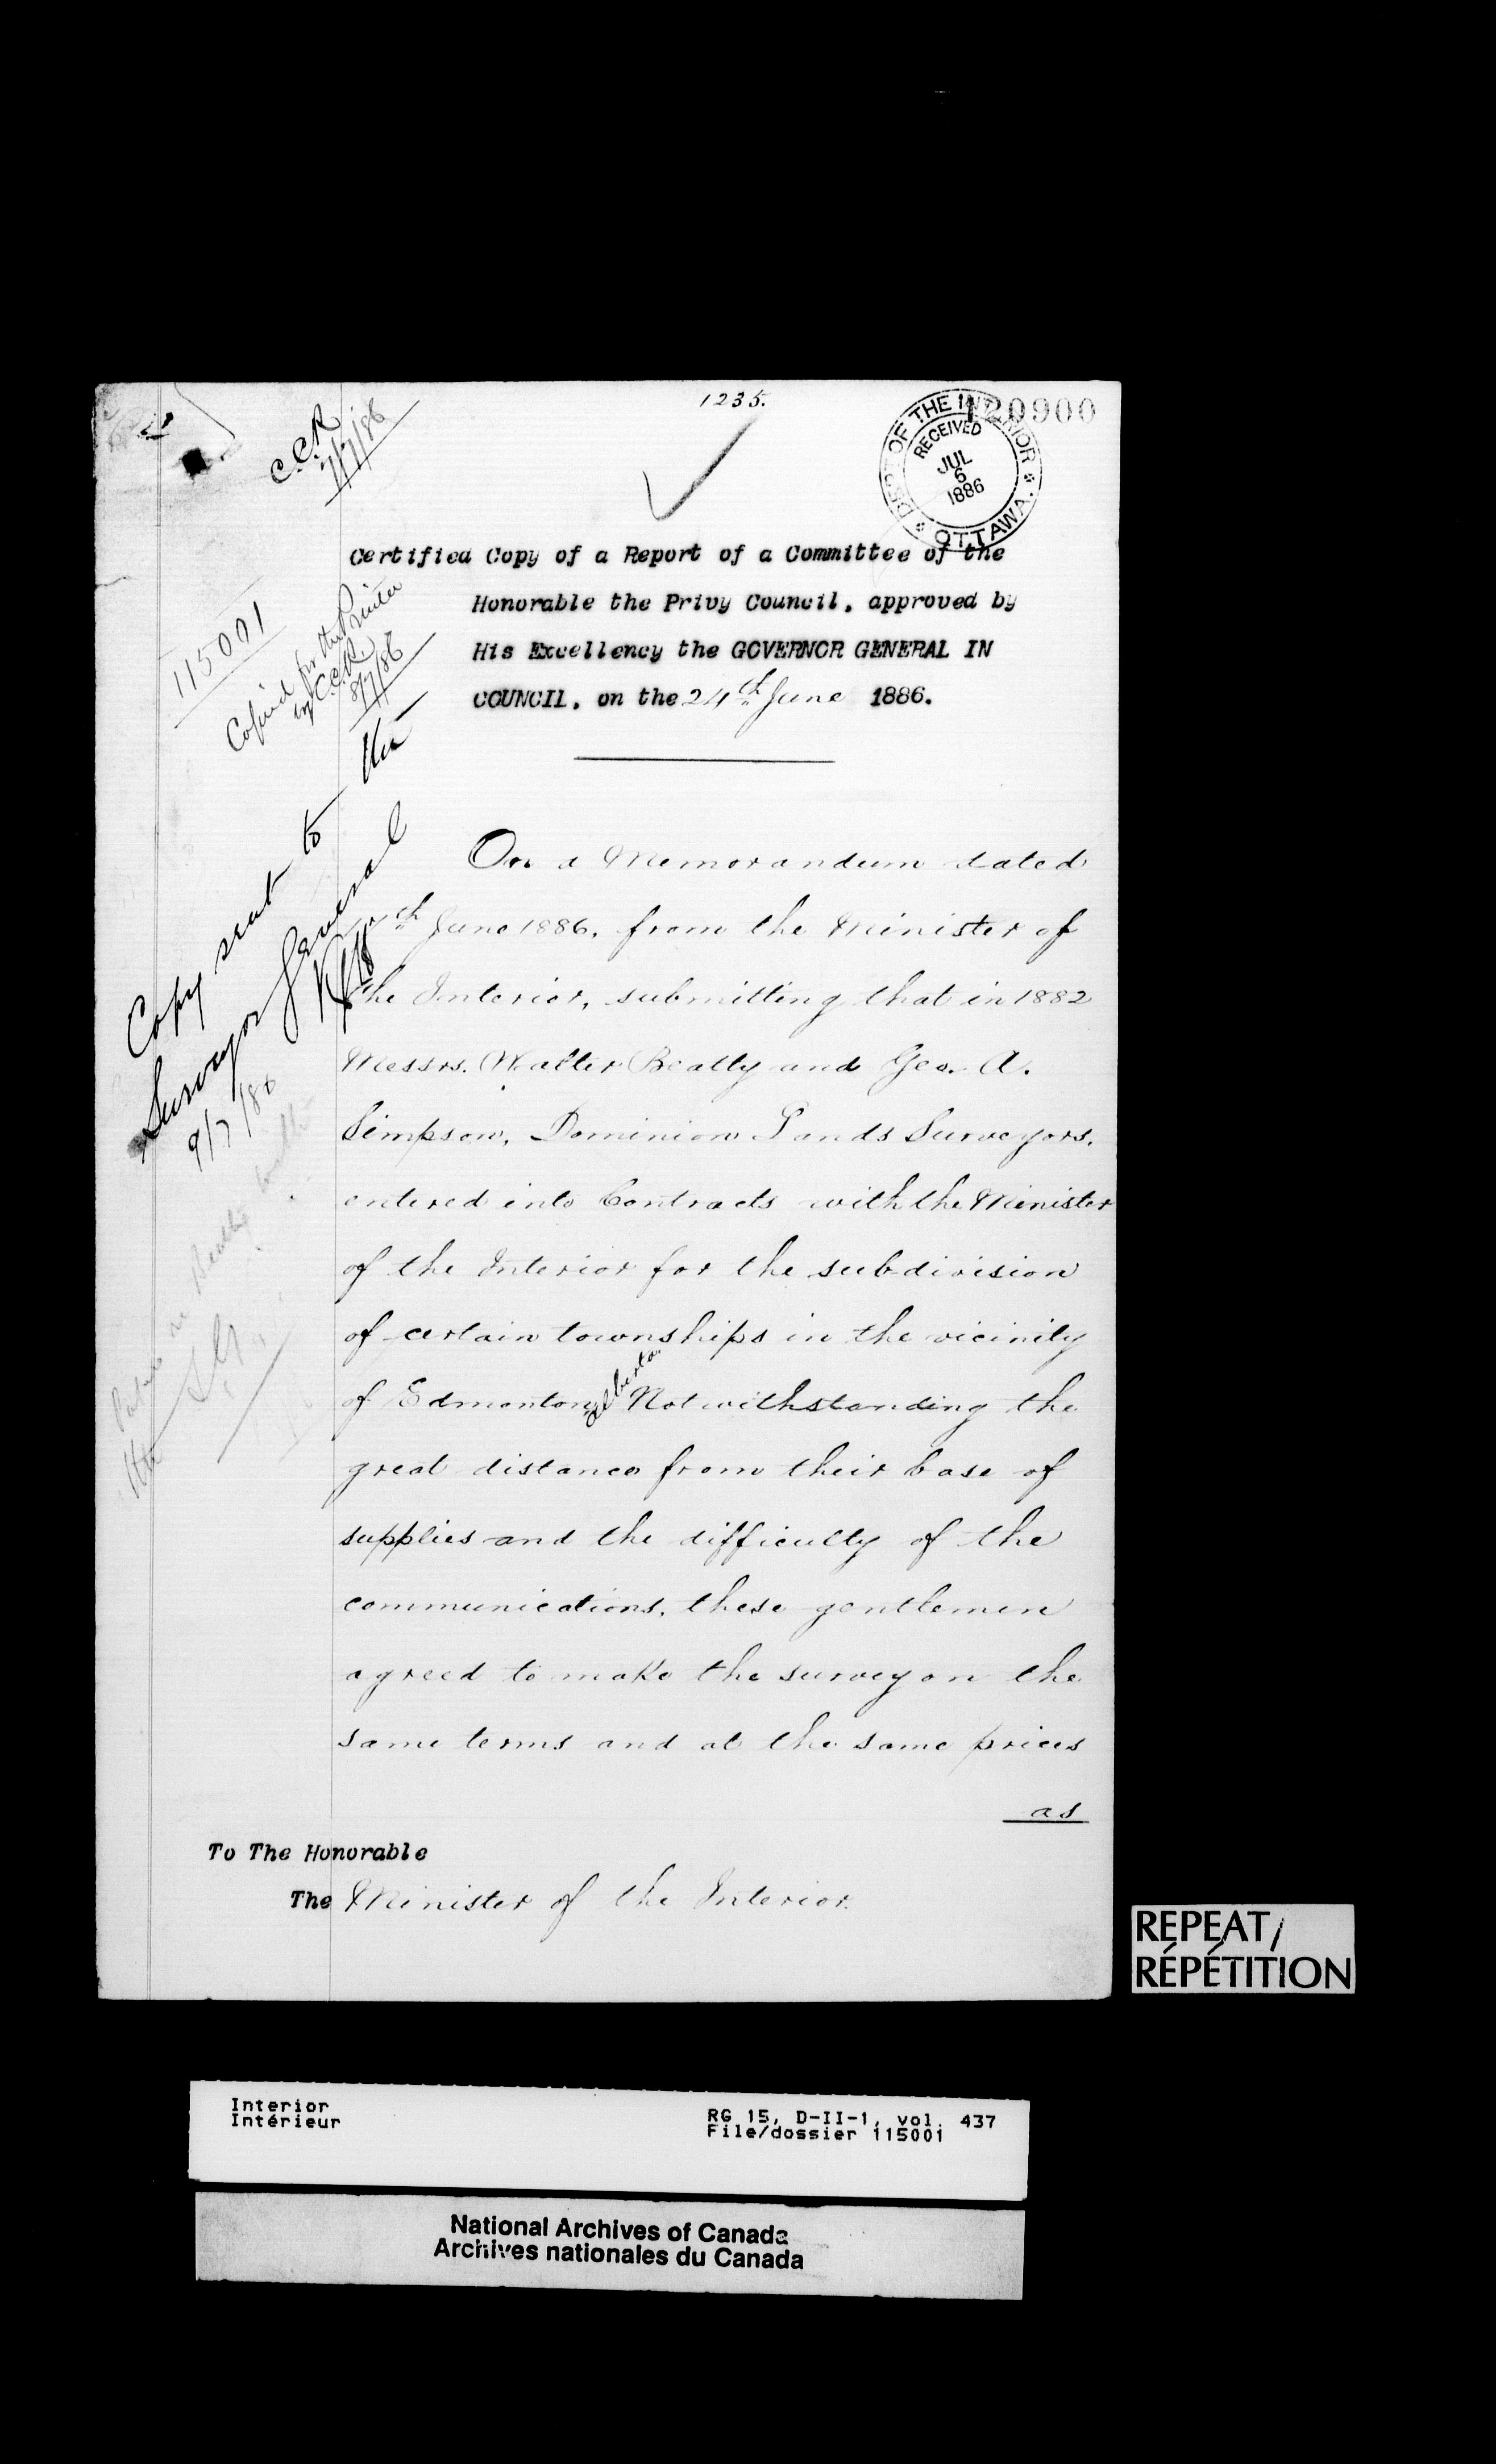 1235.
120900
DEPT OF THE INTERIOR
RECEIVED
JUL
6
1886
OTTAWA.
C.C.R.
7/7/86
Certified Copy of a Report of a Committee of the
Honorable the Privy Council, approved by
His Excellency the GOVERNOR GENERAL IN
COUNCIL, on the 24th June 1886.
115001
Copied for the Printer
by C.C.R.
8/7/86
Copy sent to the
Surveyor General
9/7/86
On a Memorandum dated
th June 1886, from the Minister of
the Interior, submitting that in 1882
Messrs. Walter Beatty and Geo. A.
Simpson, Dominion Lands Surveyors,
entered into Contracts with the Minister
of the Interior for the subdivision
of certain townships in the vicinity
of Edmonton, Alberta. Notwithstanding the
great distance from their base of
supplies and the difficulty of the
communications, these gentlemen
agreed to make the survey on the
same terms and at the same prices
as
To The Honorable
The Minister of the Interior.
REPEAT/
RÉPÉTITION
Interior
Intérieur
RG 15, D-II-1, vol. 437
File/dossier 115001
National Archives of Canada
Archives nationales du Canada